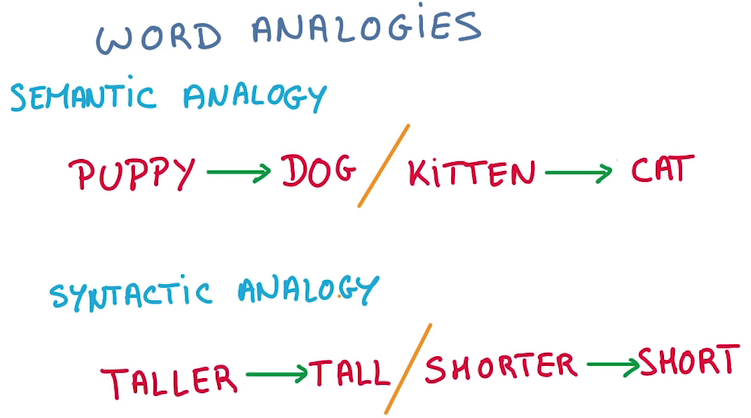 WORD ANALOGIES
SEMANTIC ANALOGY
PUPPY → DOG / KITTEN → CAT
SYNTACTIC ANALOGY
TALLER → TALL / SHORTER → SHORT